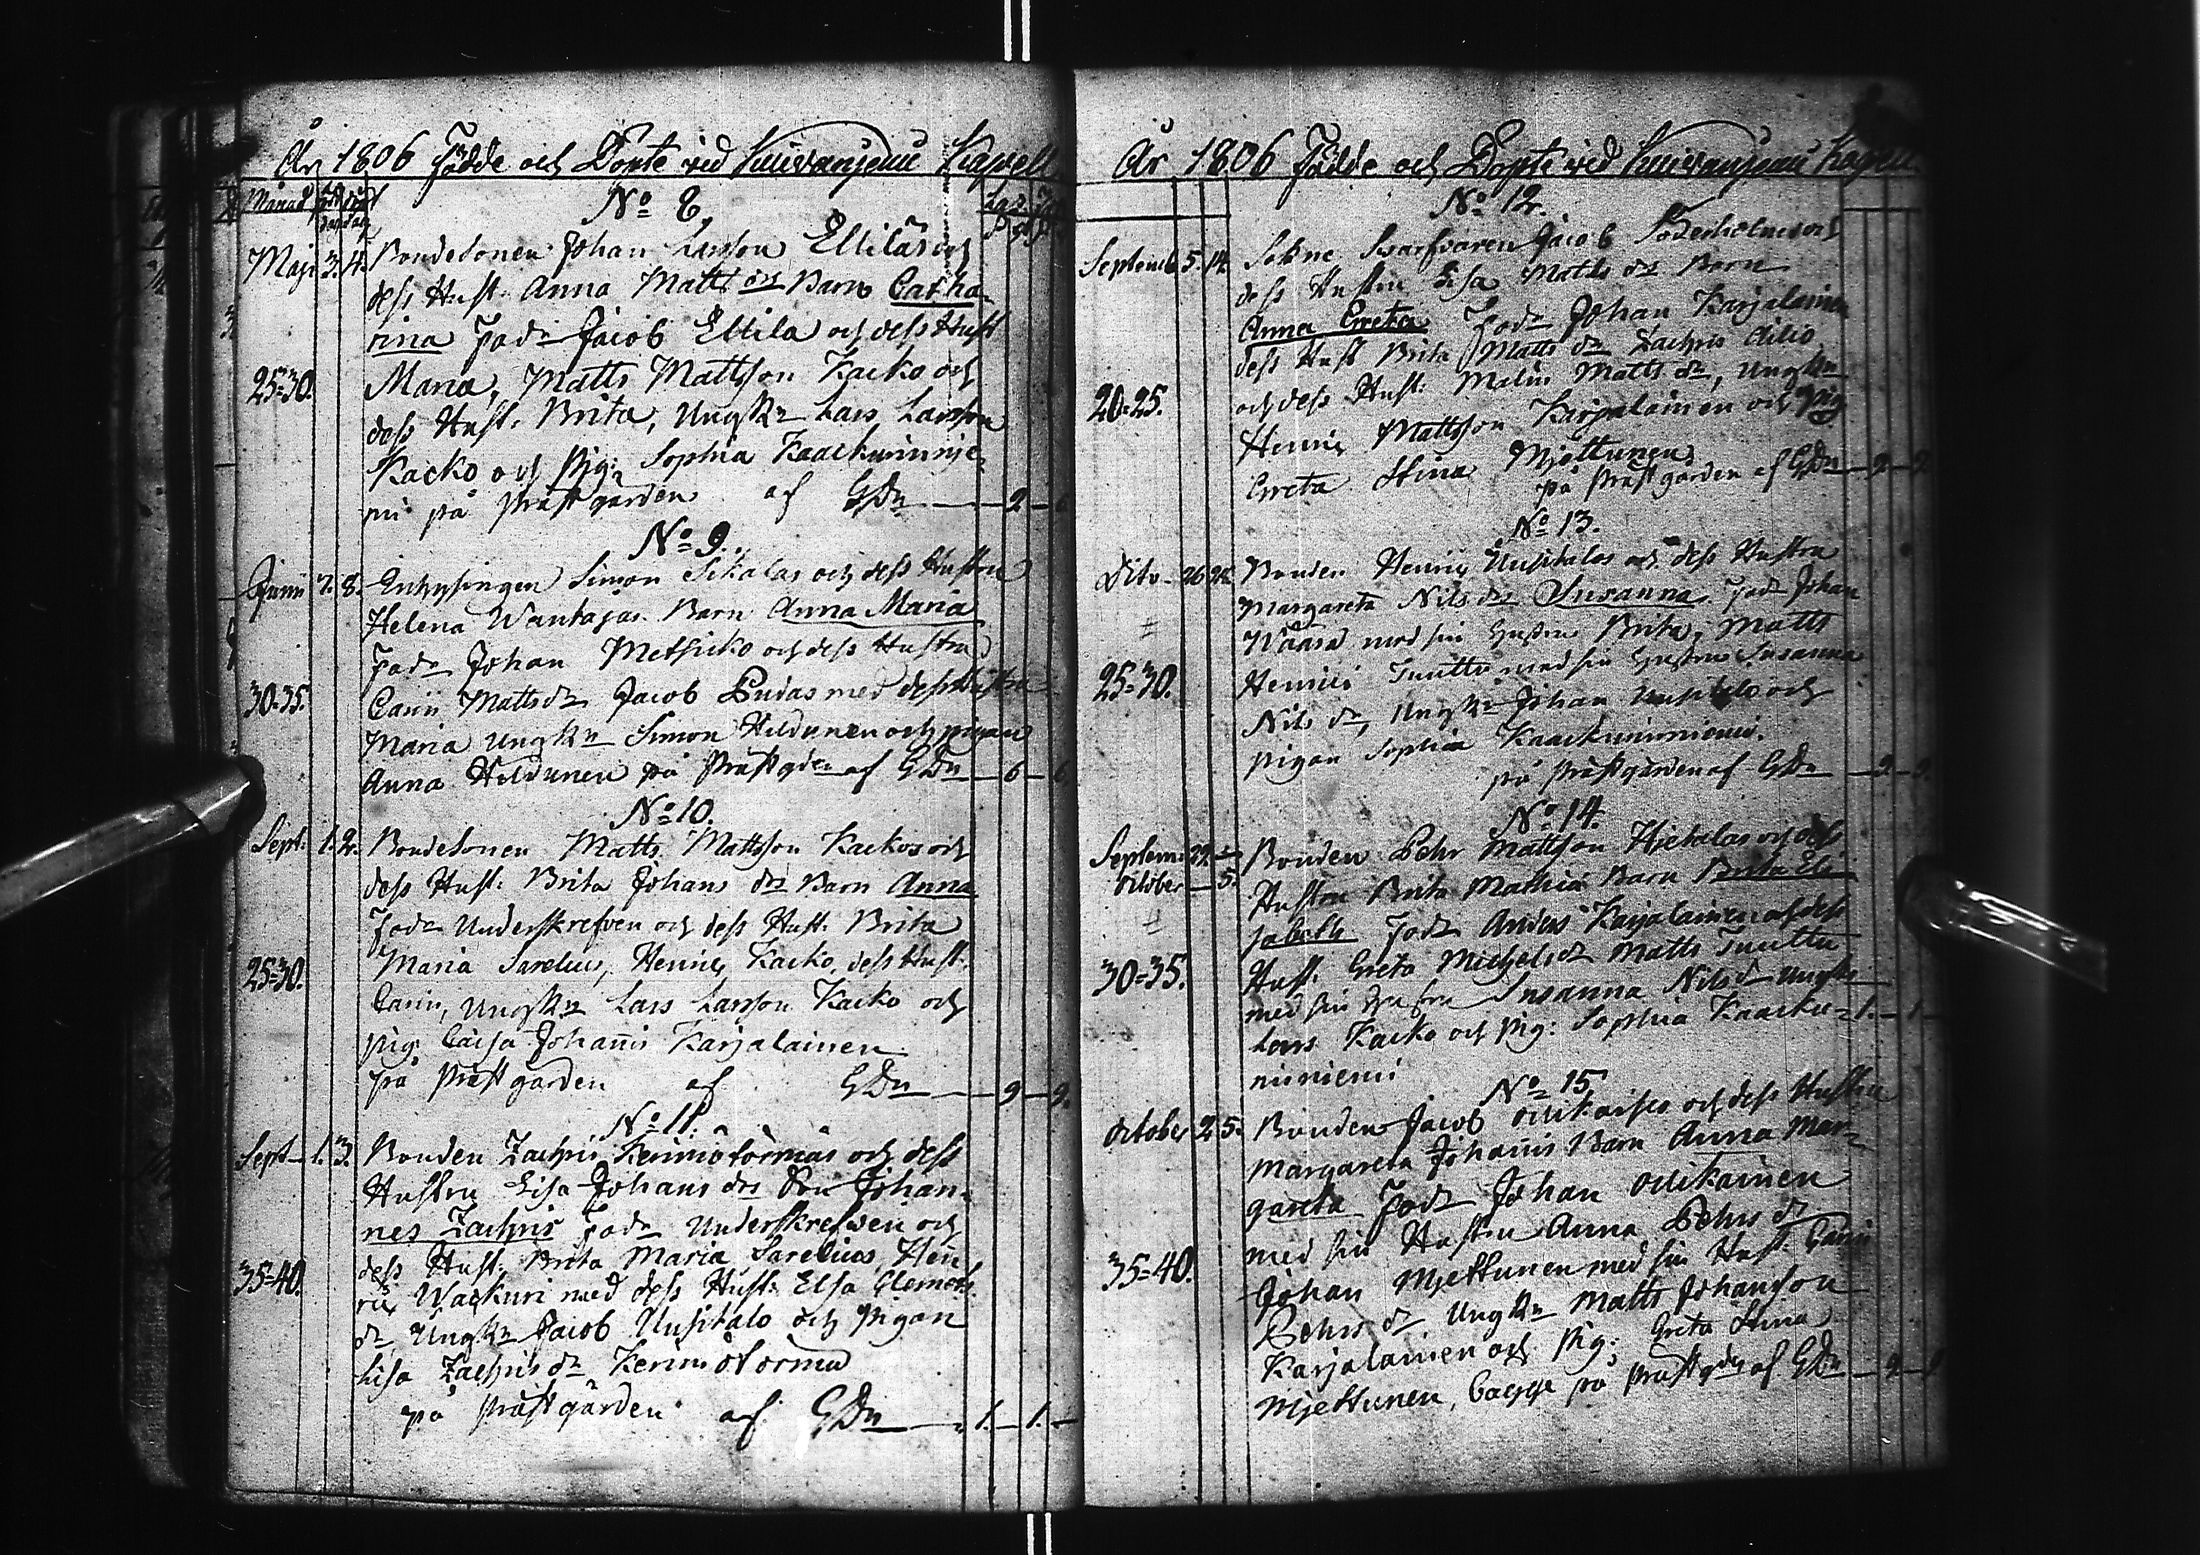 År 1806 Födde och Döpte vid Kuivanjemi Kapell
Månad
No 8.
Maji 3. 4. Bondesonen Johan Larsson Ellilas och
dess Hust: Anna Matts drs Barn Catha-
rina Fadr Jacob Ellila och dess Hust
25=30. Maria, Matts Mattsson Kacko och
dess Hust: Brita, Ungkn Lars Larsson
Kacko och Pig: Sophia Kaackuninje-
mi på Prästgården af GDn — 2 —
No 9.
Junii 7. 8. Enhysingen Simon Sikalas och dess Hustru
Helena Wantajas Barn Anna Maria
Fadr Johan Metsicko och dess Hustru
30=35. Carin Matts dr Jacob Pudas med dess Hustru
Maria Ungkn Simon Hildunen och pigan
Anna Hildunen på Prästgden af GDn — 6 — 6
No 10.
Sept: 1. 2. Bondesonen Matts Mattsson Kackos och
dess Hust: Brita Johans drs Barn Anna
Fadr Underskrefven och dess Hust: Brita
Maria Sarelius, Henric Kacko, dess Hust:
25=30. Carin, Ungkn Lars Larsson Kacko och
pig: Caisa Johanis Karjalainen
på Prästgården af GDn — 9 — 9.
No 11.
Sept — 1. 3. Bonden Zachris Keinniötörmäs och dess
Hustru Lisa Johans drs Son Johan-
nes Zachris Fadr Underskrefven och
dess Hust: Brita Maria Sarelius, Hen-
35=40. ric Wackuri med dess Hust: Elsa Clemets
dr, Ungkn Jacob Uusitalo och Pigan
Lisa Zachris dr Keinniötörmä
på Prästgården af GDn — 1. — 1. —
År 1806 Födde och Döpte vid Kuivanjemi Kapell
No 12.
Septemb 5. 14. Sokne Skarfvaren Jacob Söderholms och
dess Hustru Lisa Matts drs Barn
Anna Greta Fadr Johan Karjalainen
dess Hust Brita Matts dr Zachris Ailio
20=25. och dess Hust: Malin Matts dr, Ungkn
Henric Mattsson Karjalainen och Pig
Greta Stina Mjettunen
på Prästgården af GDn — 9 — 9
No 13.
Dito — 26 28. Bonden Henric Uusitalos och dess Hustru
Margareta Nils drs Susanna Fadr Johan
Wäärä med sin Hustru Brita, Matts
25=30. Henrici Tuuttu med sin Hustru Susanna
Nils dr, Ungkn Johan Uusitalo och
pigan Sophia Kaackuniniemi.
på Prästgården af GDn — 9 — 9.
No 14.
Septem: 29. — Bonden Pehr Mattsson Hjetalas och dess
October — 5. Hustru Brita Mathiæ Barn Brita Eli-
sabeth Fadr Anders Karjalainen och dess
30=35. Hust: Greta Michels dr Matts Tuuttu
med sin Hustru Susanna Nils dr Ungkn
Lars Kacko och pig: Sophia Kaacku= — 1. — 1 —
niniemi
No 15
October 2 5. Bonden Jacob Ollikaisco och dess Hustru
Margareta Johanis Barn Anna Mar-
gareta Fadr Johan Ollikainen
med sin Hustru Anna Pehrs dr
35=40. Johan Mjettunen med sin Hust: Carin
Pehrs dr Ungkn Matts Johansson
Karjalainen och Pig: Greta Stina
Mjettunen, Bægge på Prästgden af GDn — 9 — 9